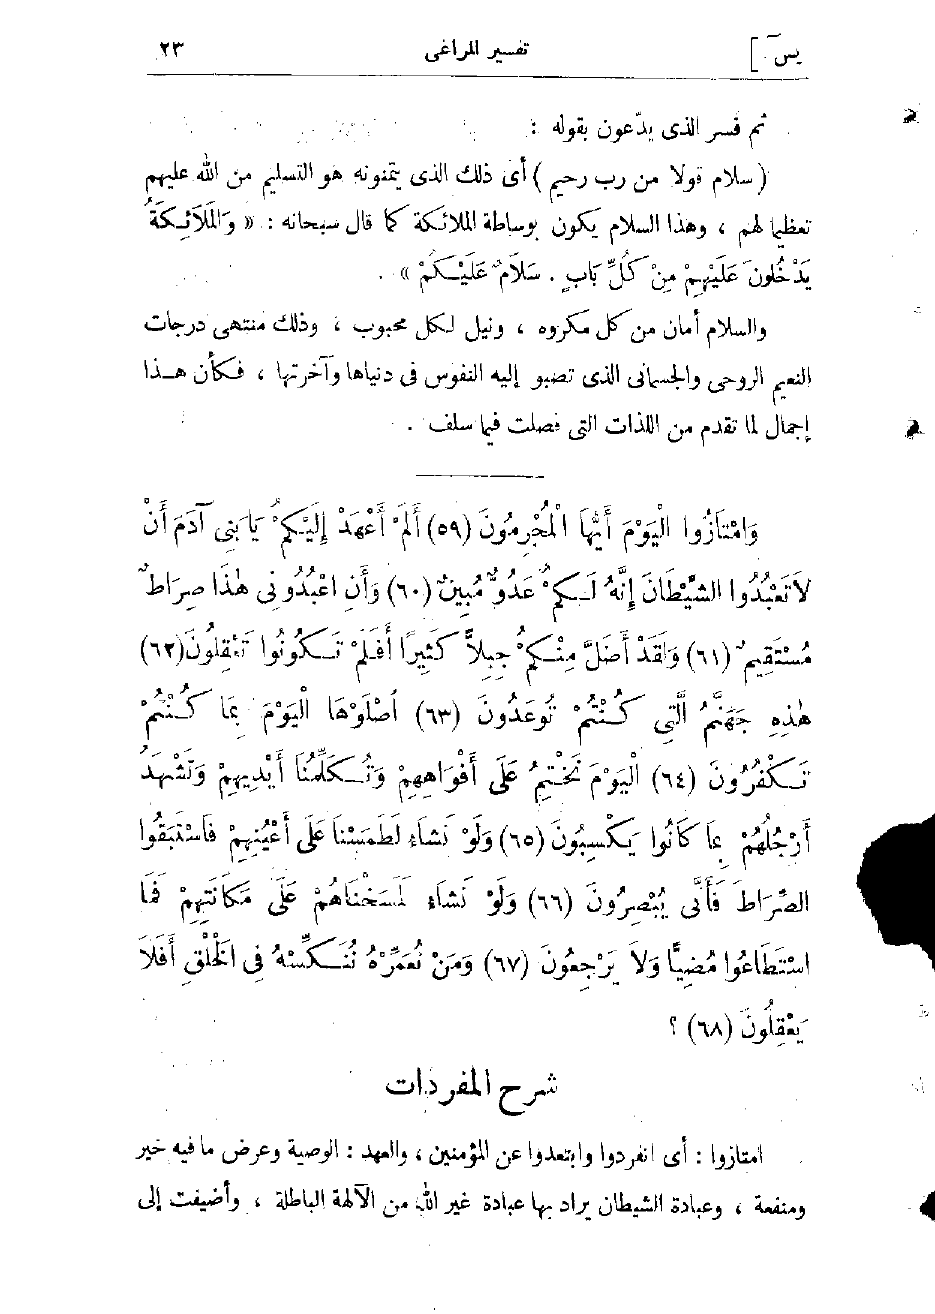 يسٓ ]
تفسير المراغى
٢٣
ثم فسر الذى يدّعون بقوله :
( سلام قولا من رب رحيم ) أى ذلك الذى يتمنونه هو التسليم من الله عليهم
تعظيما لهم ، وهذا السلام يكون بوساطة الملائكة كما قال سبحانه : « وَالْمَلَائِكَةُ
يَدْخُلُونَ عَلَيْهِمْ مِنْ كُلِّ بَابٍ . سَلَامٌ عَلَيْكُمْ » .
والسلام أمان من كل مكروه ، ونيل لكل محبوب ، وذلك منتهى درجات
النعيم الروحى والجسمانى الذى تصبو إليه النفوس فى دنياها وآخرتها ، فكأن هذا
إجمال لما تقدم من اللذات التى فصلت فيما سلف .
وَامْتَازُوا الْيَوْمَ أَيُّهَا الْمُجْرِمُونَ (٥٩) أَلَمْ أَعْهَدْ إِلَيْكُمْ يَا بَنِى آدَمَ أَنْ
لاَ تَعْبُدُوا الشَّيْطَانَ إِنَّهُ لَكُمْ عَدُوٌّ مُبِينٌ (٦٠) وَأَنِ اعْبُدُونِى هٰذَا صِرَاطٌ
مُسْتَقِيمٌ (٦١) وَلَقَدْ أَضَلَّ مِنْكُمْ جِبِلاًّ كَثِيرًا أَفَلَمْ تَكُونُوا تَعْقِلُونَ (٦٢)
هٰذِهِ جَهَنَّمُ الَّتِى كُنْتُمْ تُوعَدُونَ (٦٣) اصْلَوْهَا الْيَوْمَ بِمَا كُنْتُمْ
تَكْفُرُونَ (٦٤) الْيَوْمَ نَخْتِمُ عَلَى أَفْوَاهِهِمْ وَتُكَلِّمُنَا أَيْدِيهِمْ وَتَشْهَدُ
أَرْجُلُهُمْ بِمَا كَانُوا يَكْسِبُونَ (٦٥) وَلَوْ نَشَاءُ لَطَمَسْنَا عَلَى أَعْيُنِهِمْ فَاسْتَبَقُوا
الصِّرَاطَ فَأَنَّى يُبْصِرُونَ (٦٦) وَلَوْ نَشَاءُ لَمَسَخْنَاهُمْ عَلَى مَكَانَتِهِمْ فَمَا
اسْتَطَاعُوا مُضِيًّا وَلاَ يَرْجِعُونَ (٦٧) وَمَنْ نُعَمِّرْهُ نُنَكِّسْهُ فِى الْخَلْقِ أَفَلاَ
يَعْقِلُونَ (٦٨) ؟
شرح المفردات
امتازوا : أى انفردوا وابتعدوا عن المؤمنين ، والعهد : الوصية وعرض ما فيه خير
ومنفعة ، وعبادة الشيطان يراد بها عبادة غير الله من الآلهة الباطلة ، وأضيفت إلى